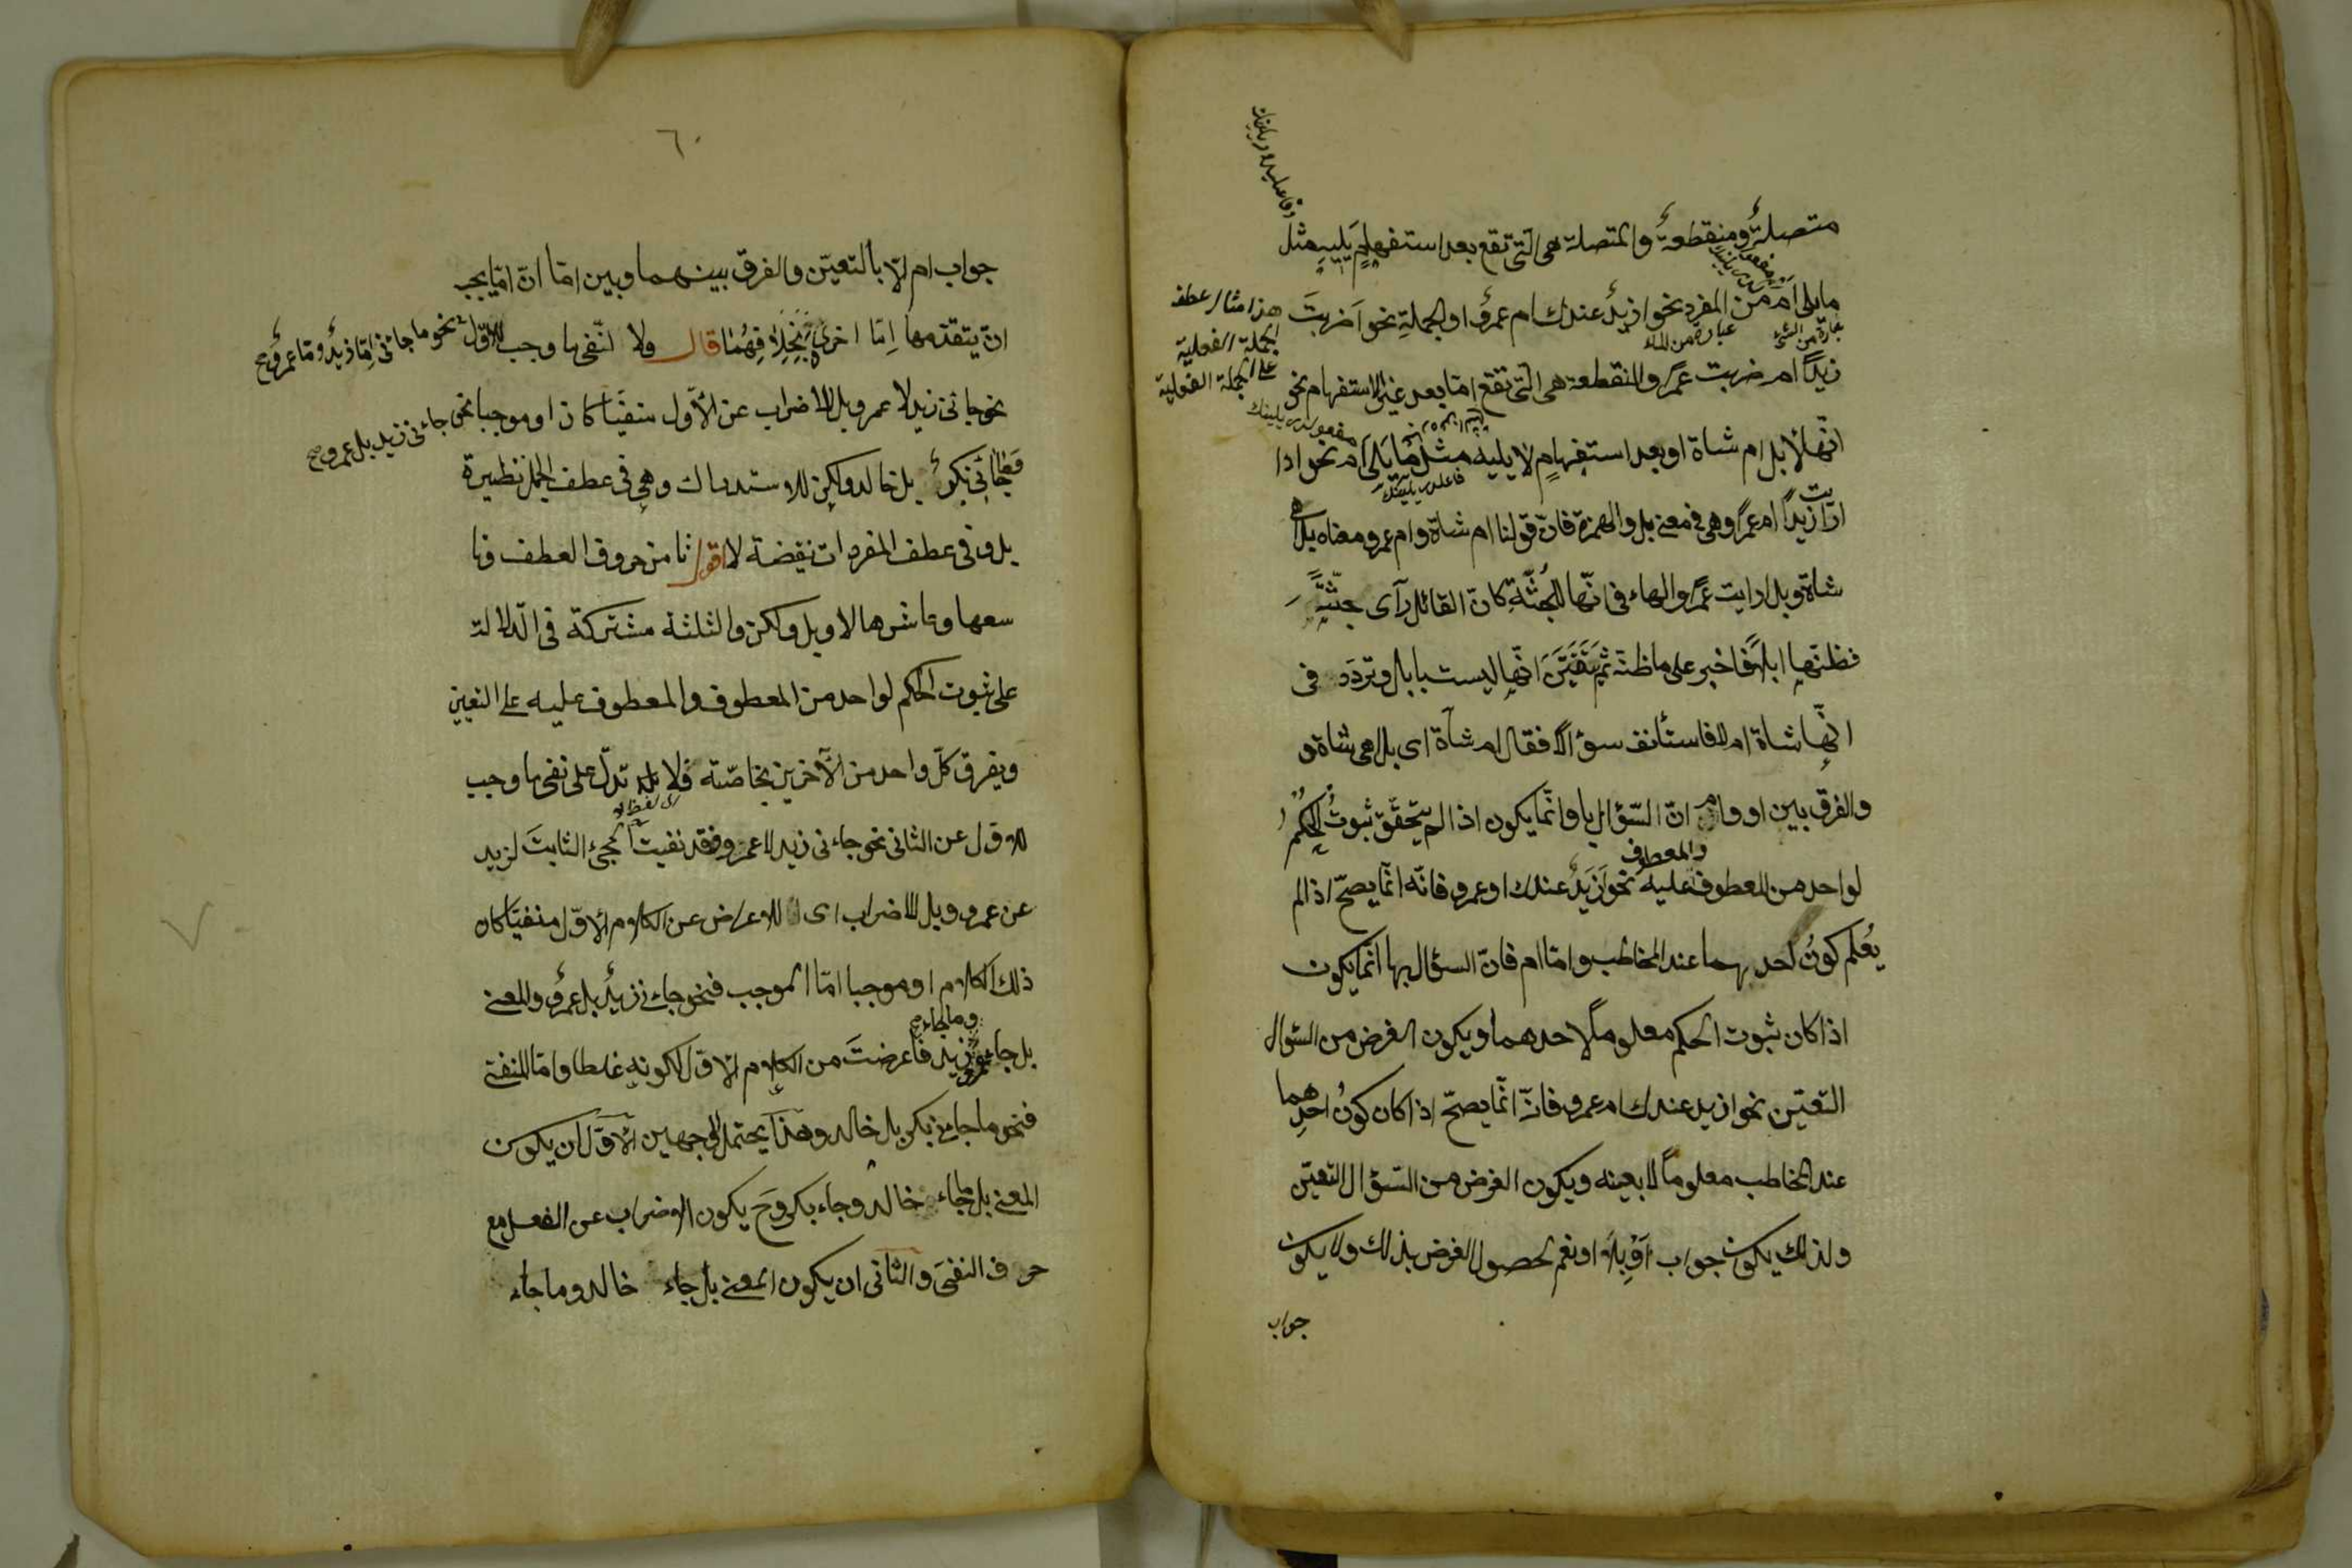 متصلة ومنقطعة والمتصلة هى التى تقع بعد استفهام يليه مثل
ما يلى ام من المفرد نحو ازيد عندك ام عمرو او الجملة نحو اضربت
هذا مثال عطف
الجملة الفعلية
على الجملة الفعلية
زيدًا ام ضربت عمرًا والمنقطعة هى التى تقع اما بعد غير الاستفهام نحو
انها لابل ام شاة او بعد استفهام لا يليه مثل ما يلى ام نحو اذا
ارايت زيدًا ام عمرًا وهى فى معنى بل والهمزة فان قولنا ام شاة وام عمرو معناه بل اهى
شاة وبل ارايت عمرًا والهاء فى انها للجثة كان القائل رآى جثة
فظنها ابلا فاخبر على ما ظنه ثم تيقن انها ليست بابل وتردد فى
انها شاة ام لا فاستأنف سؤالا فقال ام شاة اى بل اهى شاة و
والفرق بين او وام ان السؤال باو انما يكون اذا لم يتحقق ثبوت الحكم
لواحد من المعطوف عليه والمعطوف نحو ازيد عندك او عمرو فانه انما يصح اذا لم
يعلم كون احدهما عند المخاطب واما ام فان السؤال بها انما يكون
اذا كان ثبوت الحكم معلومًا لاحدهما ويكون الغرض من السؤال
التعين نحو ازيد عندك ام عمرو فانه انما يصح اذا كان كون احدهما
عند المخاطب معلومًا لا بعينه ويكون الغرض من السؤال التعين
ولذلك يكون جواب او بلا او نعم لحصول الغرض بذلك ولا يكون
جواب
٦٠
جواب ام الا بالتعين والفرق بينهما وبين اما ان اما يجب
ان يتقدمها اما اخرى بخلافهما قال ولا لنفى ما وجب للاول نحو ما جائنى اما زيد واما عمرو صح
نحو جائنى زيد لا عمرو بل للاضراب عن الأول منفيًا كان او موجبا نحو جائنى زيد بل عمرو صح
وما جائنى بكر بل خالد ولكن للاستدراك وهى فى عطف الجمل نظيرة
بل وفى عطف المفردات نقيضة لا اقول ثامن حروف العطف وتا
سعها وعاشرها لا وبل ولكن والثلثة مشتركة فى الدلالة
على ثبوت الحكم لواحد من المعطوف والمعطوف عليه على التعيين
ويفرق كل واحد من الآخرين بخاصته فلا تدل على نفى ما وجب
للاول عن الثانى نحو جاءنى زيد لا عمرو فقد نفيت المجئ الثابت لزيد
عن عمرو وبل للاضراب اى للاعراض عن الكلام الاول منفيًا كان
ذلك الكلام او موجبا اما الموجب فنحو جاءنى زيد بل عمرو والمعنى
بل جاء عمرو وما جاء زيد فاعرضت من الكلام الاول لكونه غلطا واما المنفى
فنحو ما جاءنى بكر بل خالد وهذا يحتمل الوجهين الاول ان يكون
المعنى بل ما جاء خالد وجاء بكر وح يكون الاضراب عن الفعل مع
حرف النفى والثانى ان يكون المعنى بل جاء خالد وما جاء